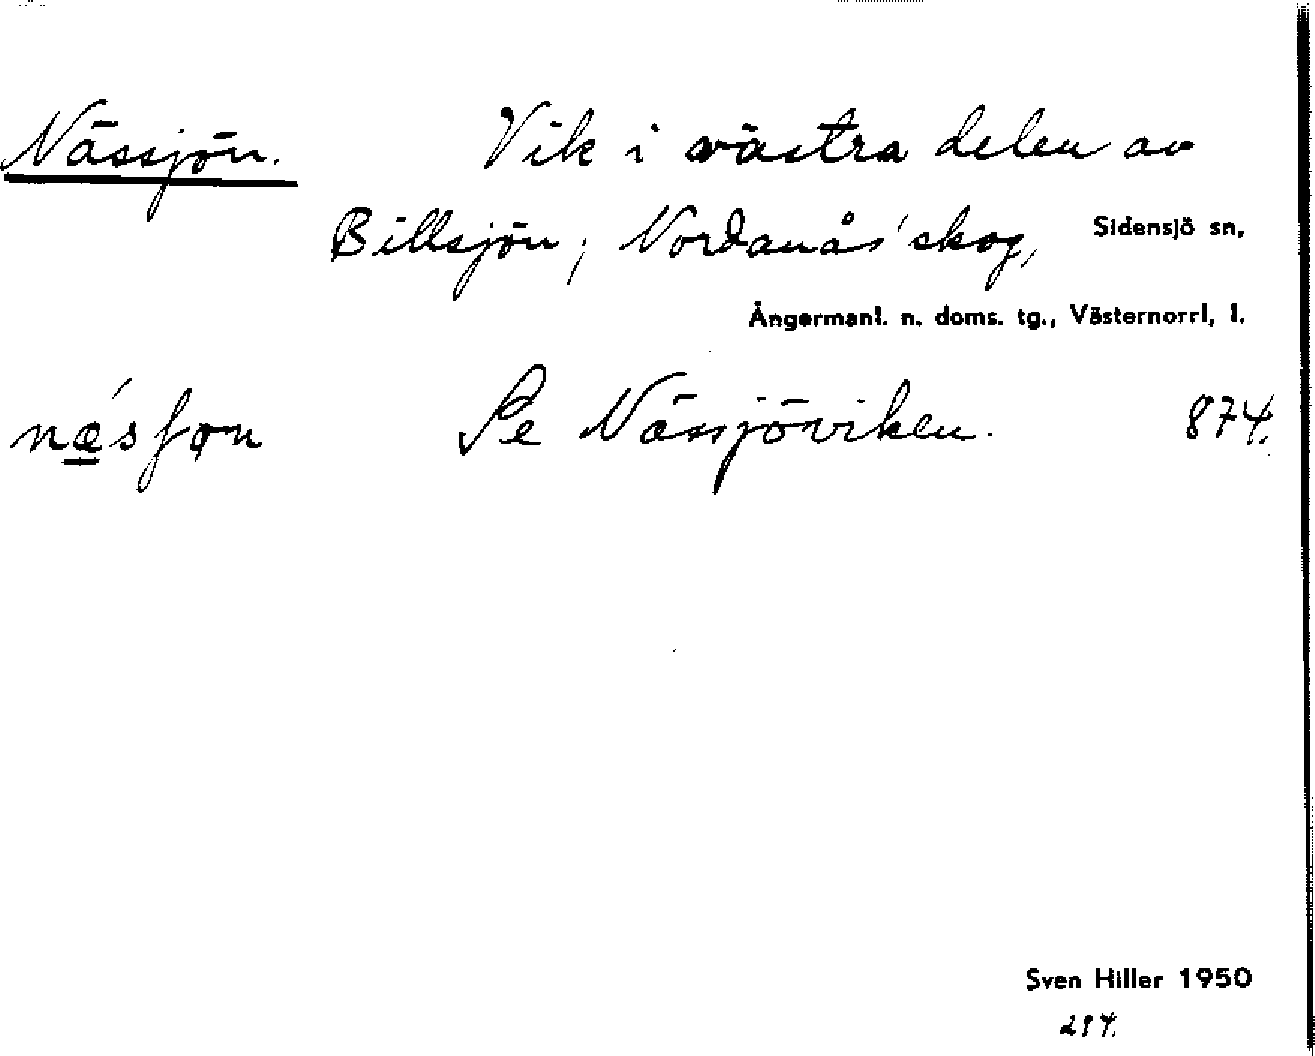 Nässjön. Vik i västra delen av
Billsjön; Nordanås' skog, Sidensjö sn,
Ångermanl. n. doms. tg., Västernorrl, l.
nǽ̲sʃɷn Se Nässjöviken. 874.
Sven Hiller 1950
284.